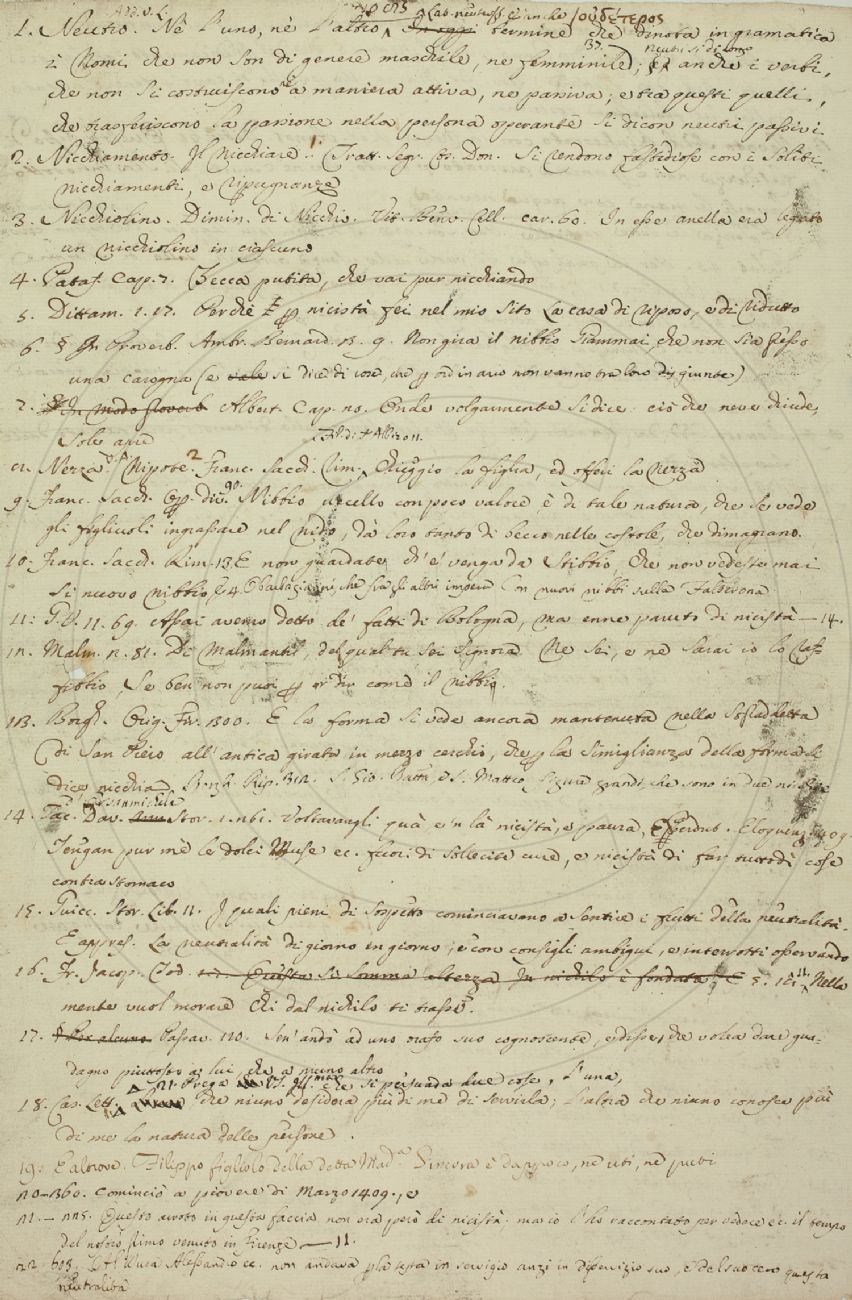 Add. v. L. Lat. neutrum è anche οὐδέτερος
1. Neutro. Nè l'uno, nè l'altro termine che dinota in gramatica
i Nomi che non son di genere maschile, ne femminile; neutri si dicono anche i verbi,
che non si costruiscono a maniera attiva, ne passiva; e tra questi quelli,
che trasferiscono la passione nella persona operante si dicon neutri passivi.
2. Nicchiamento. Il Nicchiare. Tratt. Segr. Cos. Don. Si rendono fastidiose con i soliti
nicchiamenti, e ripugnanze
3. Nicchiolino. Dimin. di Nicchio. Vit. Benv. Cell. car. 60. In esse anella era legato
un nicchiolino in ciascuno
4. Pataf. Cap. 7. Zecca putita, che vai pur nicchiando
5. Dittam. 1. 17. Perchè nicistà fei nel mio sito La casa di riposo, e di ridutto
6. § Proverb. Ambr. Bernard. 3. 9. Non gira il nibbio giammai, che non sia presso
una carogna (e vale si dice di cose, che ordinario non vanno tra loro disgiunte)
7. In modo proverb Albert. Cap. 20. Onde volgarmente si dice: ciò che neve chiude,
Sole apre
8. Nezza. Nipote. 2 Franc. Sacch. Rim. Cheggio la figlia, ed offevi la Nezza
9. Franc. Sacch. Op. div. 90. Nibbio uccello con poco valore è di tale natura, che se vede
gli figliuoli ingrassare nel nido, dà loro tanto di becco nelle costole, che dimagrano.
10. Franc. Sacch. Rim. 13. E non guardate ch'e' venga da Stibbio, Che non vedeste mai
si nuovo nibbio, E 4. O barbagianni, che fra gli altri impera Con nuovi nibbi sulla Falterona
11: G. V. 11. 69. Assai avemo detto de' fatti di Bologna, ma enne paruto di nicistà — 14.
12. Malm. 2. 81. Di Malmantil, del qual tu sei Signora Ne sei, e ne sarai io lo raf-
fibbio, Se ben non puoi dir come il nibbio.
13. Borgh. Orig. Fir. 300. E la forma si vede ancora mantenuta nella
di San Piero all'antica girata in mezzo cerchio, che la simiglianza della forma le
dice nicchia. Borgh. Rip. 312. S. Gio. Batta. e S. Matteo figure grandi, che sono in due nicchie
Orsanmichele
14. Tac. Dav. Stor. 1. 261. Voltavangli quà, e 'n là nicistà, e paura, E Perdut. Eloquenz. 409.
Tengan pur me le dolci Muse ec. fuori di sollecite cure, e nicistà di far tuttodì cose
contra stomaco
15. Guicc. Stor. Lib. 11. I quali pieni di sospetto cominciavano a sentire i frutti della neutralità.
E appres. La neutralità di giorno in giorno, e con consigli ambigui, e interrotti osservando
16. Fr. Jacop. Tod. Questa si somma altezza In nichilo è fondata, E 5. Nella
mente vuol morare Chi dal nichilo ti trasse.
17. § Per alcuno Passav. 120. Sen' andò ad uno orafo suo cognoscente, e disse, che volea dare gua-
dagno piuttosto a lui, che a niuno altro
21. Prega V. S. Illma. che si persuada due cose, l'una,
18. Cas. Lett. che niuno desidera più di me di servirla; l'altra che niuno conosce più
di me la natura delle persone.
19. E altrove. Filippo figliolo della detta Mad.a Ginevra è dappoco, nè uti, nè puti
20 — 360. Cominciò a piovere di Marzo 1409., e
21. — 225. Questo arroto in questa faccia non era però di nicistà: ma io l'ho raccontato per vedere ec. il tempo
del nostro primo venuto in Firenze — 11.
22. 603. L'Al Duca Alessandro ec. non andava la testa in servigio anzi in diservizio suo, questa
neutralità